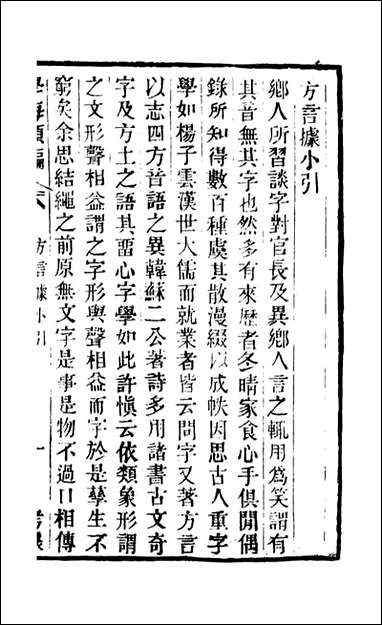 方言據小引
鄉人所習談字對官長及異鄉人言之輒用爲笑謂有
其音無其字也然多有來歷者冬晴家食心手俱閒偶
錄所知得數百種虞其散漫綴以成帙因思古人重字
學如楊子雲漢世大儒而就業者皆云問字又著方言
以志四方音語之異韓蘇二公著詩多用諸書古文奇
字及方土之語其畱心字學如此許愼云依類象形謂
之文形聲相益謂之字形與聲相益而字於是孳生不
窮矣余思結繩之前原無文字是事是物不過口相傳
學海類編 方言據小引 一